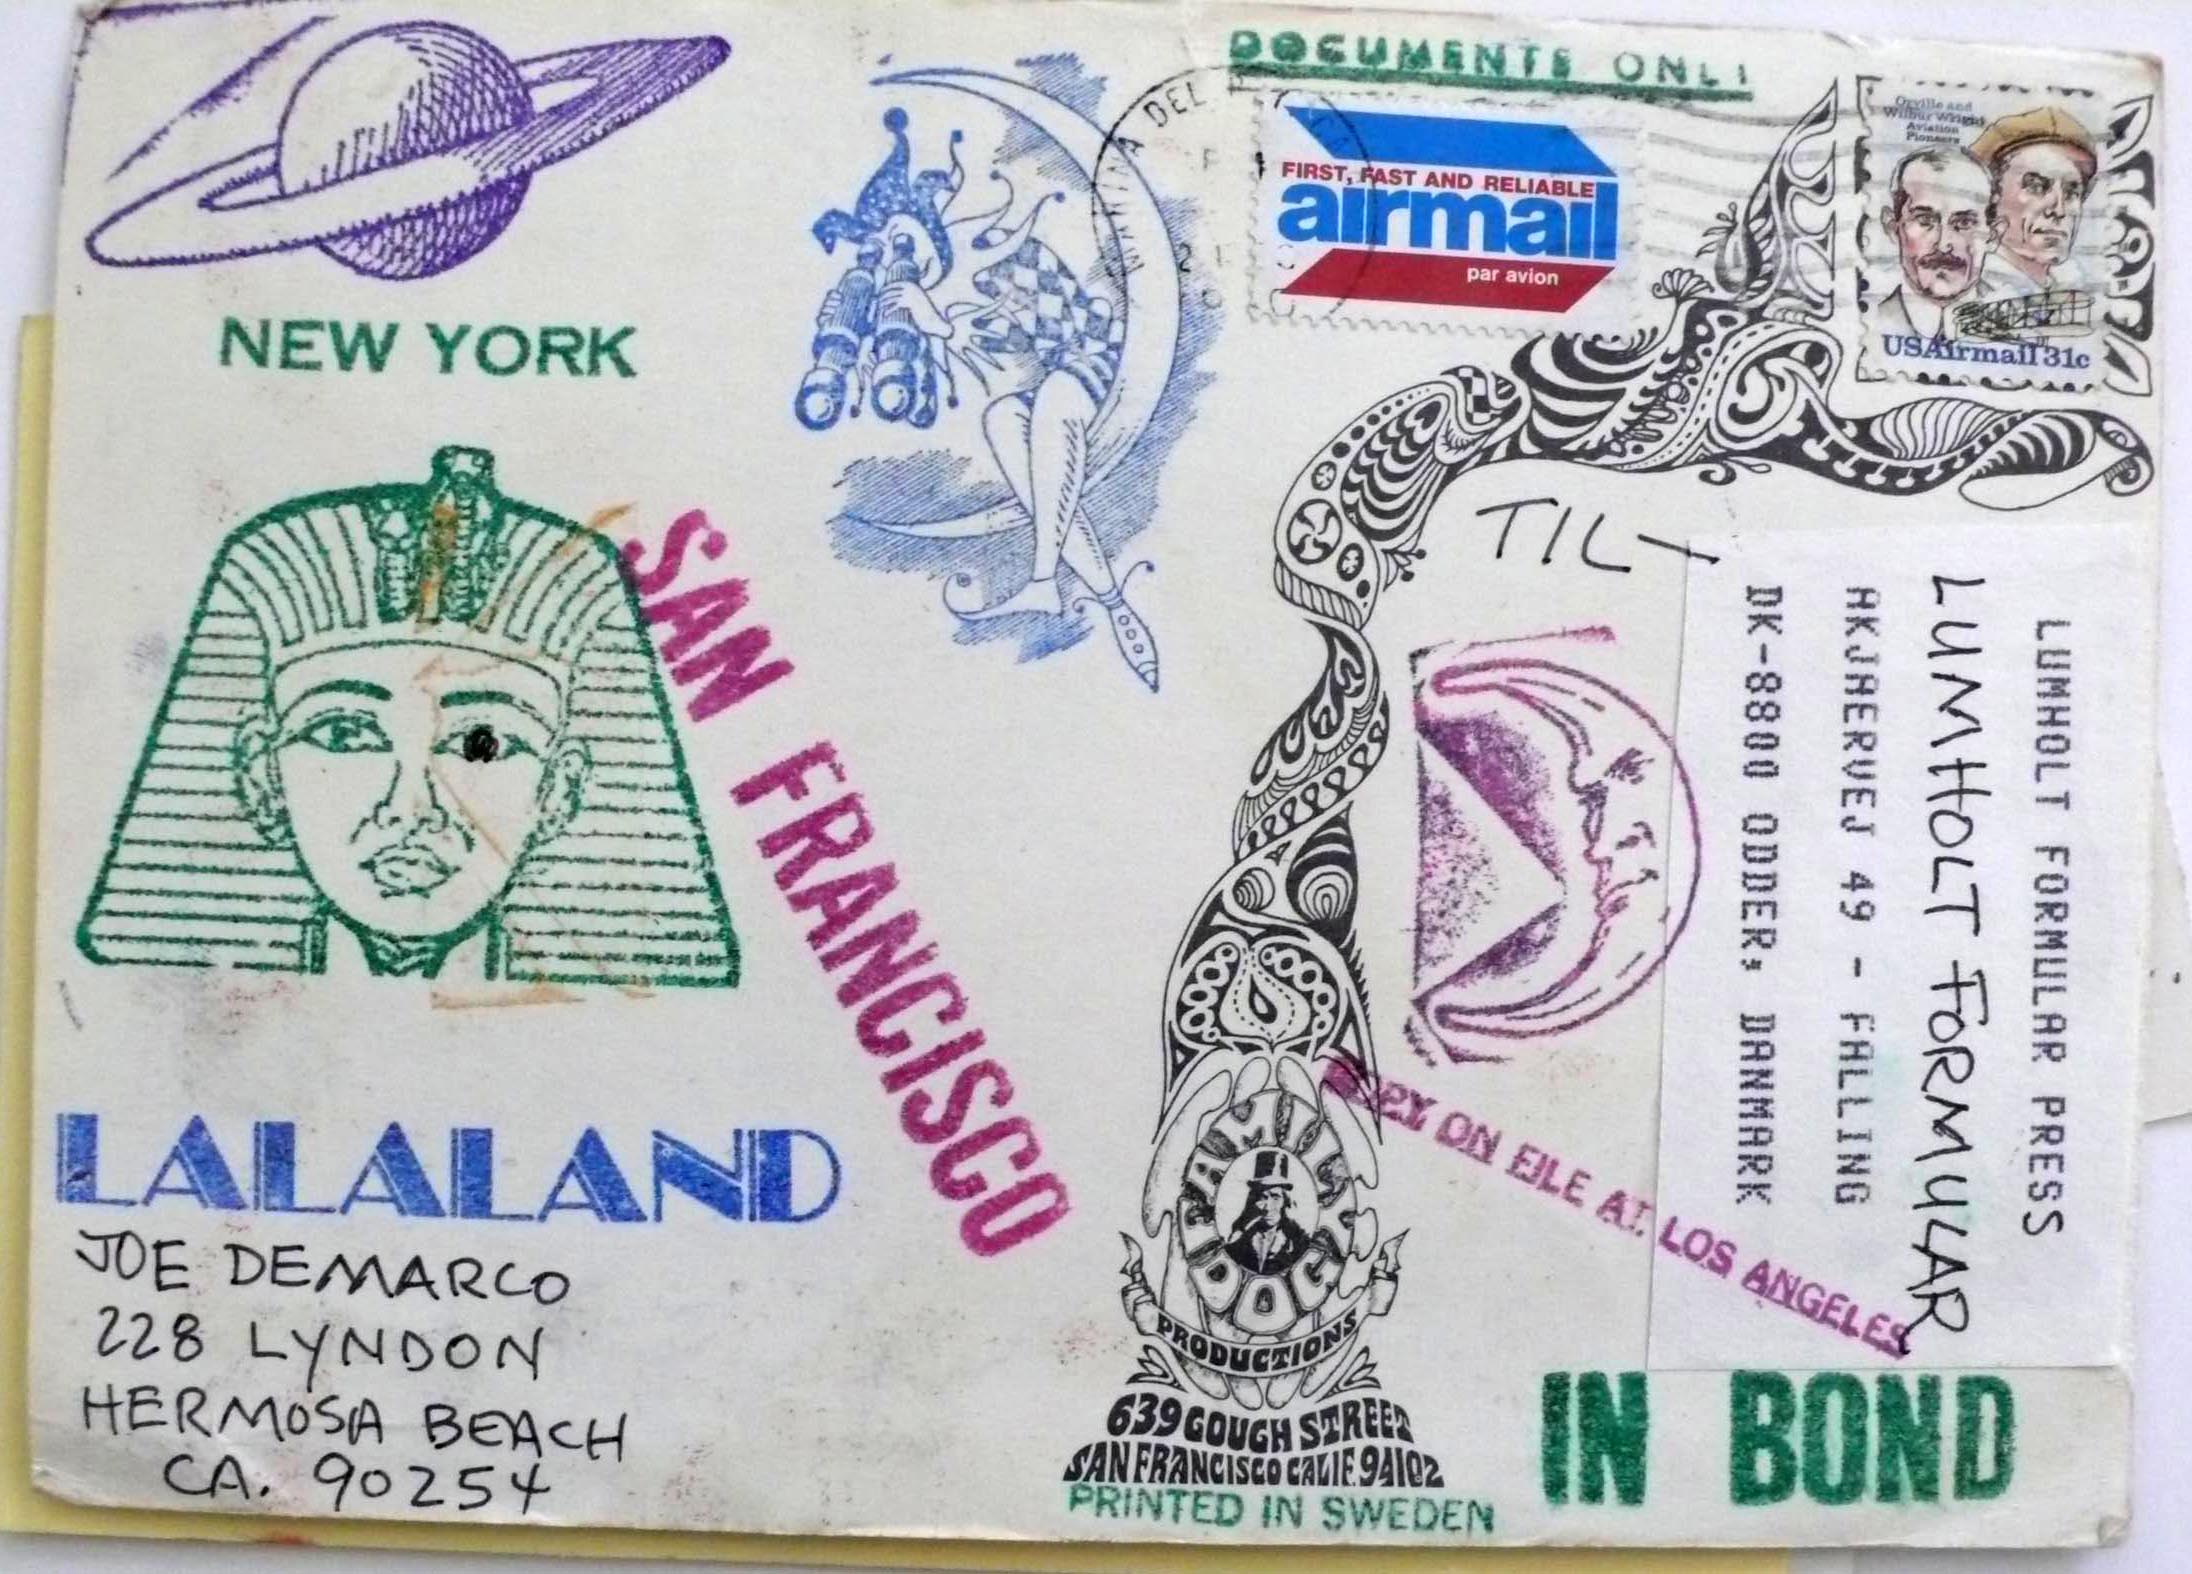 DOCUMENTS ONLY
MARINA DEL
FIRST, FAST AND RELIABLE
airmail
par avion
Orville and
Wilbur Wright
Aviation
Pioneers
USAirmail 31c
NEW YORK
SAN FRANCISCO
TIL
LUMHOLT FORMULAR PRESS
LUMHOLT FORMULAR
AKJAERVEJ 49 - FALLING
DK-8800 ODDER, DANMARK
ON FILE AT LOS ANGELES
LALALAND
JOE DEMARCO
228 LYNDON
HERMOSA BEACH
CA. 90254
FAMILY
DOGG
PRODUCTIONS
639 GOUGH STREET
SAN FRANCISCO CALIF. 94102
PRINTED IN SWEDEN
IN BOND